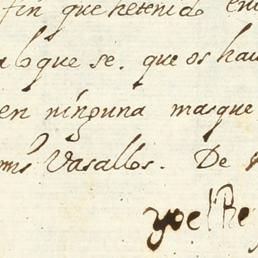 fin que he tenido en
a lo que se. que os hau
en ninguna mas que
mis Vasallos. De
yo el Rey